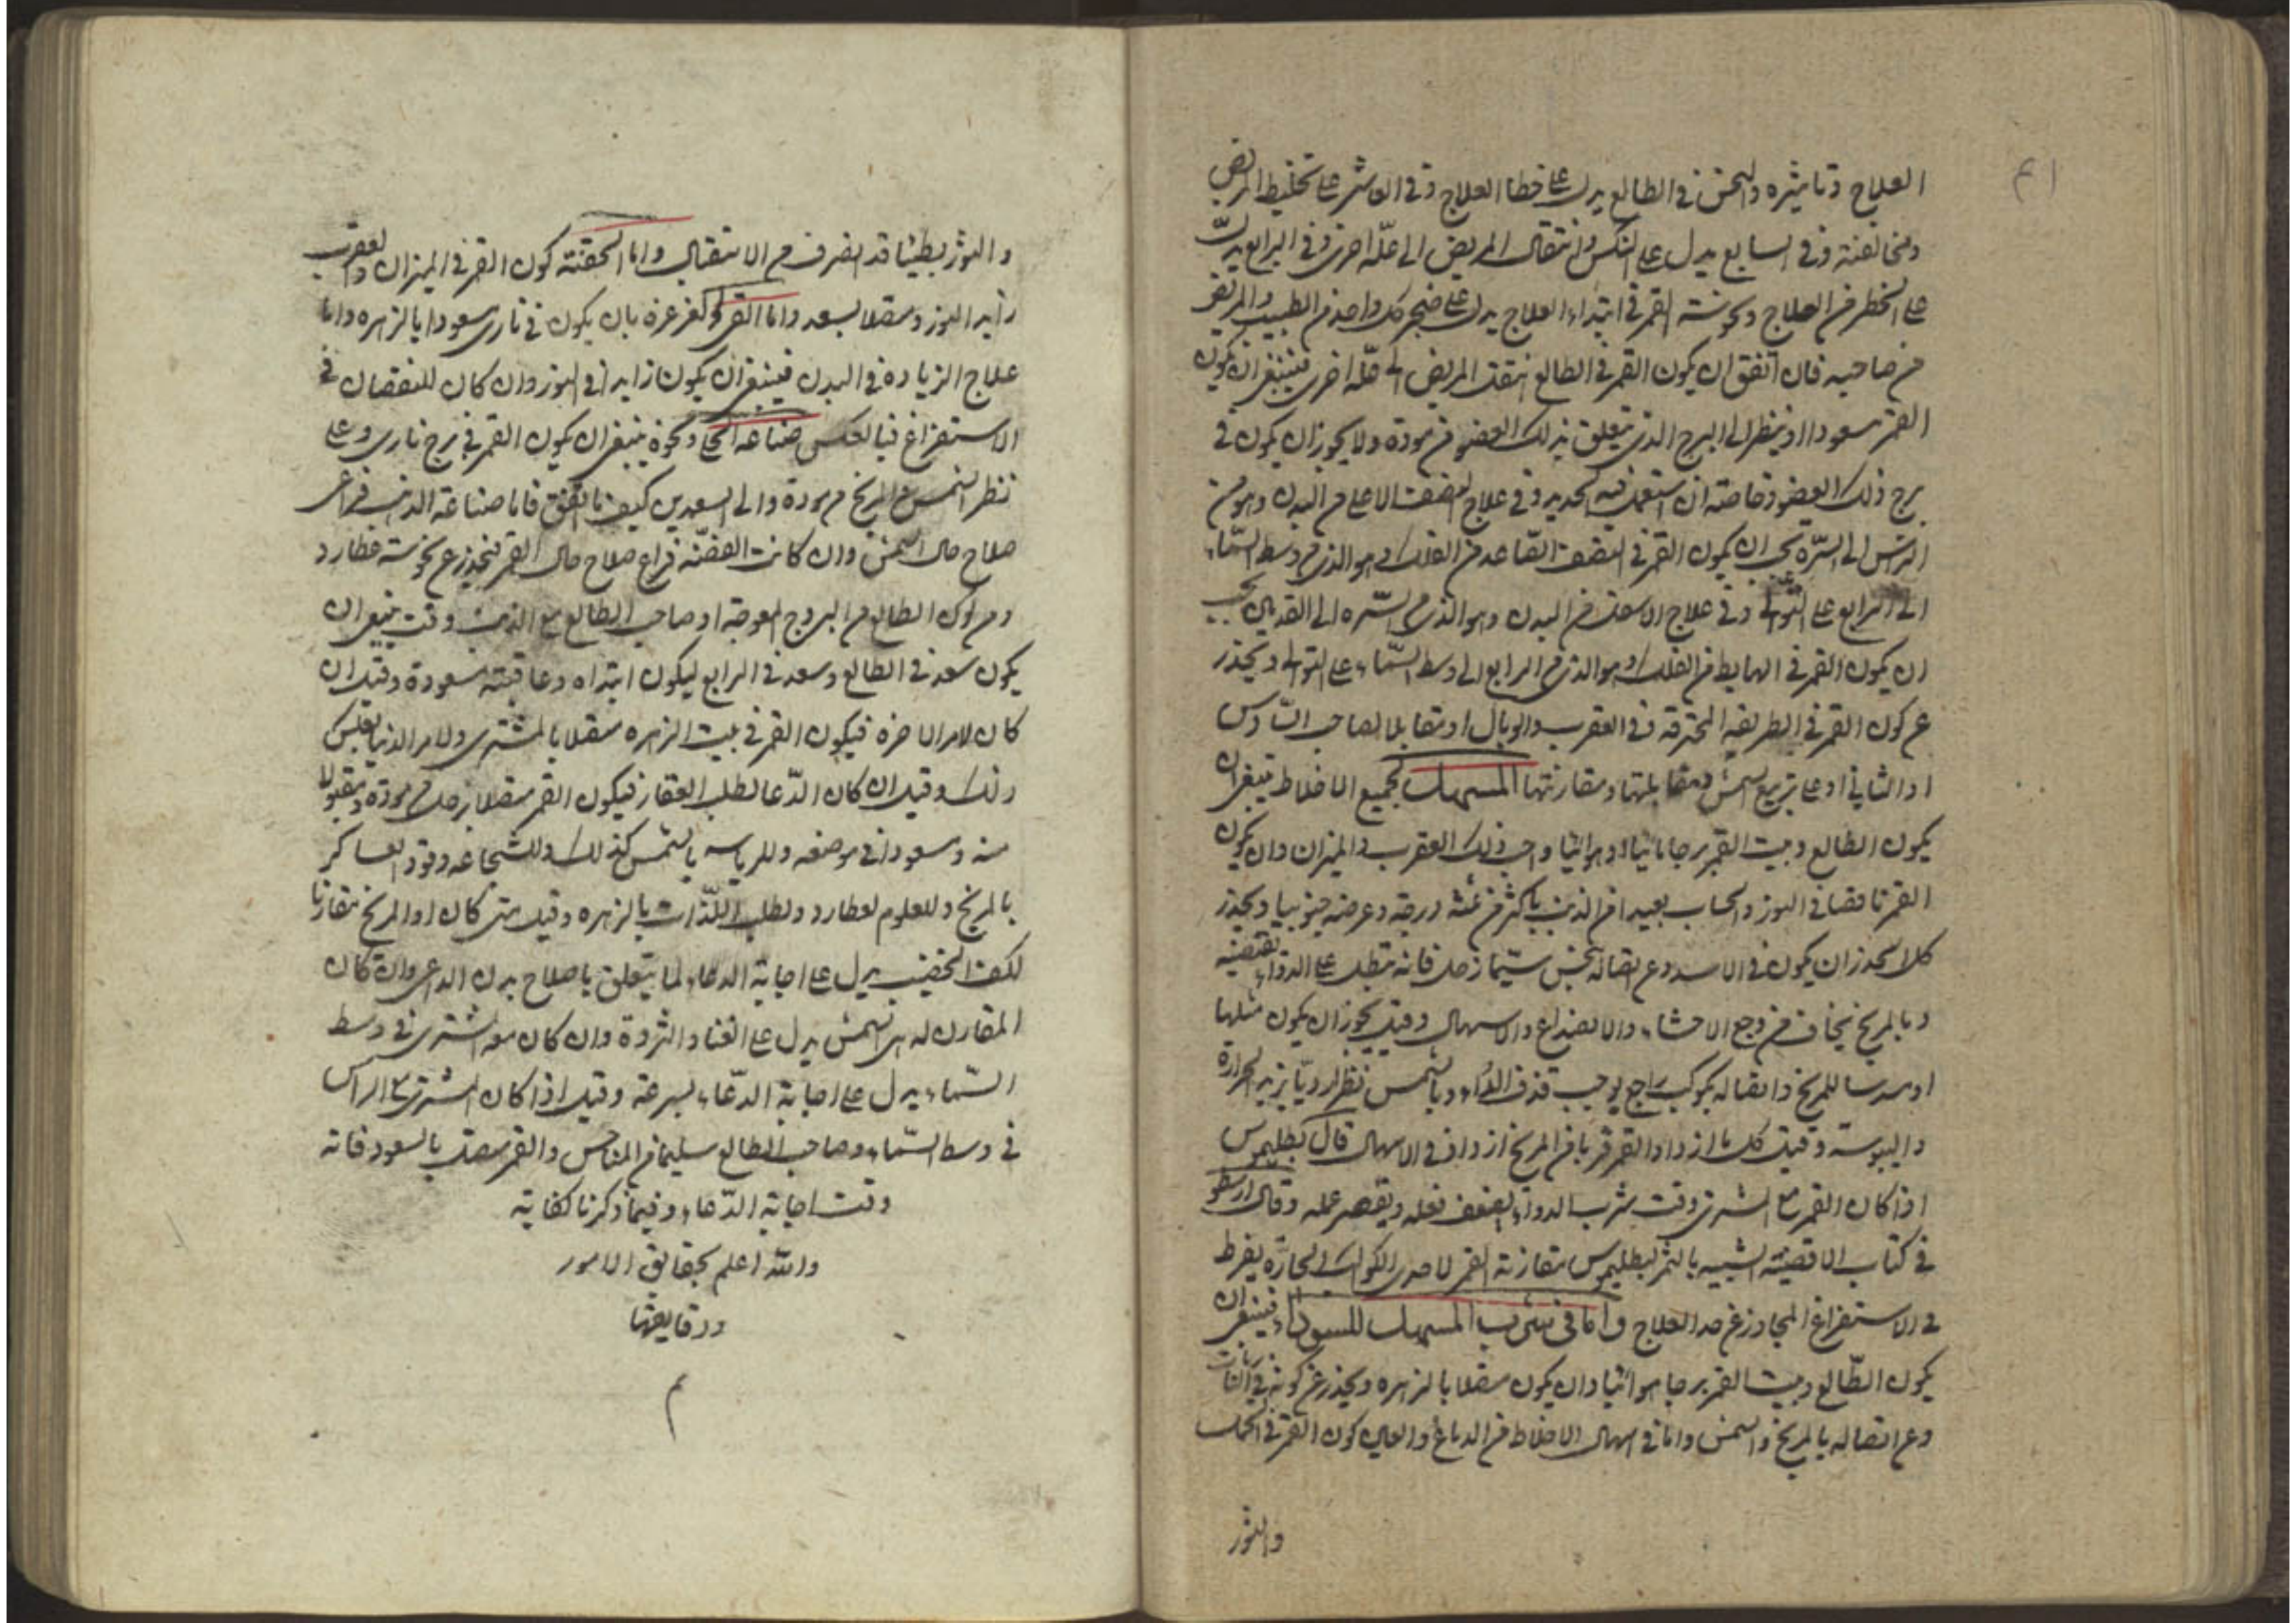 العلاج وتاثيره والنحس في الطالع يدل على خطا العلاج وفي العاشر على تخليط المريض
ومخالفته وفي السابع يدل على النكس وانتقال المريض الى علة اخرى وفي الرابع يدل
على الخطر من العلاج ونحوسة القمر في ابتداء العلاج يدل على ضجر كل واحد من الطبيب والمريض
من صاحبه فان اتفق ان يكون القمر في الطالع انتقل المريض الى علة اخرى فينبغي ان يكون
القمر مسعودا او ينظر الى البرج الذي يتعلق بذلك العضو من مودة ولا يجوز ان يكون في
برج ذلك العضو وخاصة ان استعمل فيه الحديد وفي علاج النصف الاعلى من البدن وهو من
الراس الى السرة يجب ان يكون القمر في النصف الصاعد من الفلك وهو الذي من وسط السماء
الى الرابع على التوالي وفي علاج الاسفل من البدن وهو الذي من السرة الى القدمين يجب
ان يكون القمر في الهابط من الفلك وهو الذي من الرابع الى وسط السماء على التوالي ويحذر
عن كون القمر في الطريقة المحترقة وفي العقرب والوبال او متقابلا لصاحب السادس
او الثاني او على تربيع الشمس ومقابلتها ومقارنتها المسهل لجميع الاخلاط ينبغي ان
يكون الطالع وبيت القمر برجا مائيا او هوائيا واحب ذلك العقرب والميزان وان يكون
القمر ناقصا في النور والحساب بعيدا من الذنب باكثر من درجة وعرضه جنوبيا ويحذر
كلا يحذر ان يكون في الاسد وعن اتصاله بنحس سيما زحل فانه يبطل على الدواء نقضته
وبالمريخ يخاف من وجع الاحشاء والانصداع والاسهال وقيل يجوز ان يكون مثلثا
او مسدسا للمريخ واتصاله بكوكب راجع يوجب قذف الدواء وبالشمس نظرا رديا يزيد الحرارة
واليبوسة وقيل كل ما ازداد القمر قربا من المريخ ازداد في الاسهال قال بطليموس
اذا كان القمر مع المشتري وقت شرب الدواء يضعف فعله ويقصر عمله وقال ارسطو
في كتاب الاقضية الشبيه بالثمر لبطليموس مقارنة القمر لاحدى الكواكب الحارة يفرط
في الاستفراغ المجاوز عن حد العلاج واما في شرب المسهل للسوداء فينبغي ان
يكون الطالع وبيت القمر برجا هوائيا وان يكون متصلا بالزهرة ويحذر عن كونه في
وعن اتصاله بالمريخ والشمس واما في اسهال الاخلاط من الدماغ والعين كون القمر في الحمل
والثور
والثور بطيئا قد انصرف من الاستقبال واما الحقنة كون القمر في الميزان والعقرب
زايد النور ومتصلا بسعد واما القئ والغرغرة بان يكون في ناري مسعودا بالزهرة واما
علاج الزيادة في البدن فينبغي ان يكون زايدا في النور وان كان للنقصان في
الاستفراغ فبالعكس صناعة ونحوه ينبغي ان يكون القمر في برج ناري وعلى
نظر الشمس مع المريخ من مودة والى السعدين كيف ما اتفق فاما صناعة الذهب فراعى
صلاح حال الشمس وان كانت الفضة فراع صلاح حال القمر فيحذر عن نحوسة عطارد
ومن كون الطالع من البروج المعوجة او صاحب الطالع مع الذنب وقت ينبغي ان
يكون سعد في الطالع وسعد في الرابع ليكون ابتداه وعاقبته مسعودة وقيل ان
كان لامر الاخرة فيكون القمر في بيت الزهرة متصلا بالمشتري ولامر الدنيا بعكس
ذلك وقيل ان كان الدعا لطلب العقار فيكون القمر متصلا بزحل من مودة ومقبولا
منه ومسعودا في موضعه وللرياسه بالشمس كذلك وللشجاعة وقود العساكر
بالمريخ وللعلوم لعطارد ولطلب اللذات بالزهرة وقيل متى كان او المريخ مقارنا
لكف الخضيب يدل على اجابة الدعاء لما يتعلق باصلاح بدن الداعي وان كان
المقارن له هي الشمس يدل على الغنا والثروة وان كان معه المشتري في وسط
السماء يدل على اجابة الدعاء بسرعة وقيل اذا كان المشتري مع الراس
في وسط السماء وصاحب الطالع سليما من المناحس والقمر متصل بالسعود فانه
وقت اجابة الدعاء وفيما ذكرنا كفاية
والله اعلم بحقايق الامور
ودقايقها
م